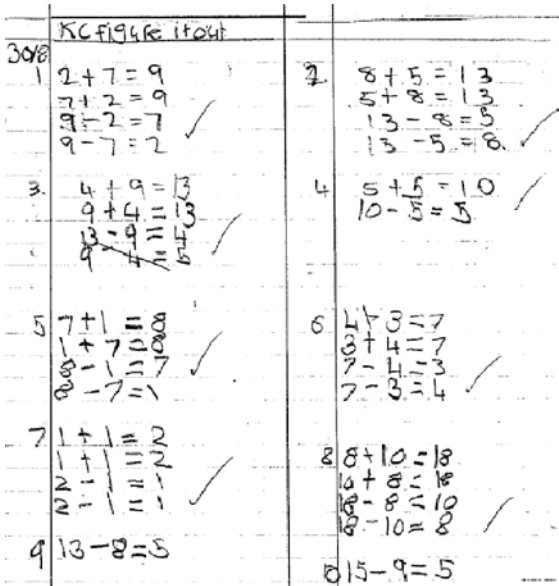 KC figure it out
30/8
1 2 + 7 = 9
7 + 2 = 9
9 - 2 = 7
9 - 7 = 2
2 8 + 5 = 13
5 + 8 = 13
13 - 8 = 5
13 - 5 = 8
3. 4 + 9 = 13
9 + 4 = 13
13 - 9 = 4
9 - 4 = 5
4 5 + 5 = 10
10 - 5 = 5
5 7 + 1 = 8
1 + 7 = 8
8 - 1 = 7
8 - 7 = 1
6 4 + 3 = 7
3 + 4 = 7
7 - 4 = 3
7 - 3 = 4
7 1 + 1 = 2
1 + 1 = 2
2 - 1 = 1
2 - 1 = 1
8 8 + 10 = 18
10 + 8 = 18
18 - 8 = 10
18 - 10 = 8
9 13 - 8 = 5
10 15 - 9 = 5